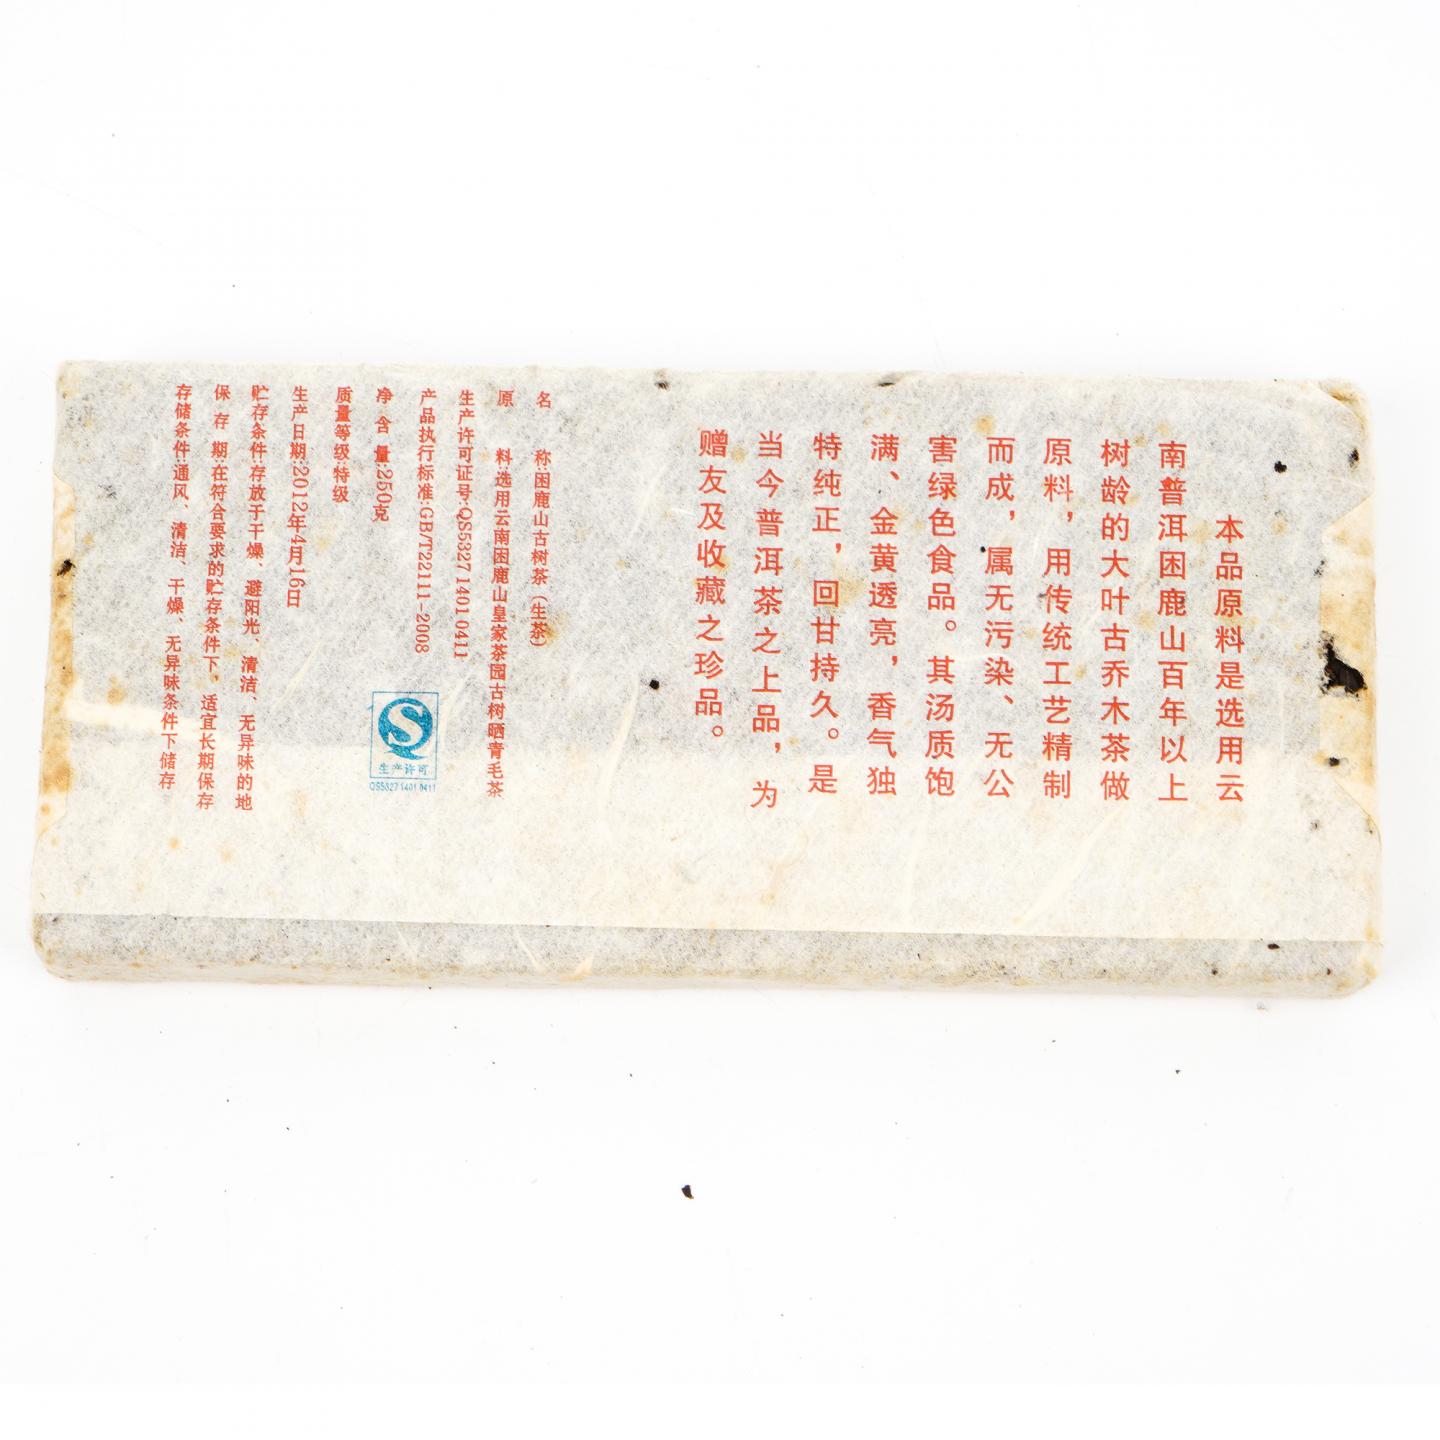 本品原料是选用云
南普洱困鹿山百年以上
树龄的大叶古乔木茶做
原料，用传统工艺精制
而成，属无污染、无公
害绿色食品。其汤质饱
满、金黄透亮，香气独
特纯正，回甘持久。是
当今普洱茶之上品，为
赠友及收藏之珍品。
名 称:困鹿山古树茶（生茶）
原 料:选用云南困鹿山皇家茶园古树晒青毛茶
生产许可证号:QS5327 1401 0411
产品执行标准:GB/T22111-2008
净 含 量:250克
质量等级:特级
生产日期:2012年4月16日
贮存条件:存放于干燥、避阳光、清洁、无异味的地
保 存 期:在符合要求的贮存条件下，适宜长期保存
存储条件:通风、清洁、干燥、无异味条件下储存
生产许可
QS5327 1401 0411